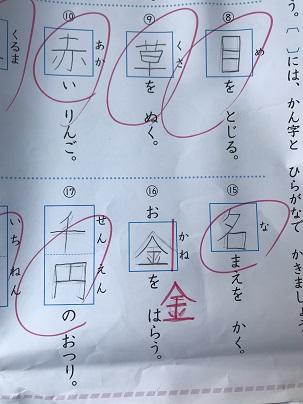 う。〔 〕には、かん字と ひらがなで かきましょ
⑧
め
目を とじる。
⑨
くさ
草を ぬく。
⑩
あか
赤い りんご。
くるま
⑮
な
名まえを かく。
⑯
かね
お金を はらう。
金
⑰
せん えん
千円の おつり。
いちねん